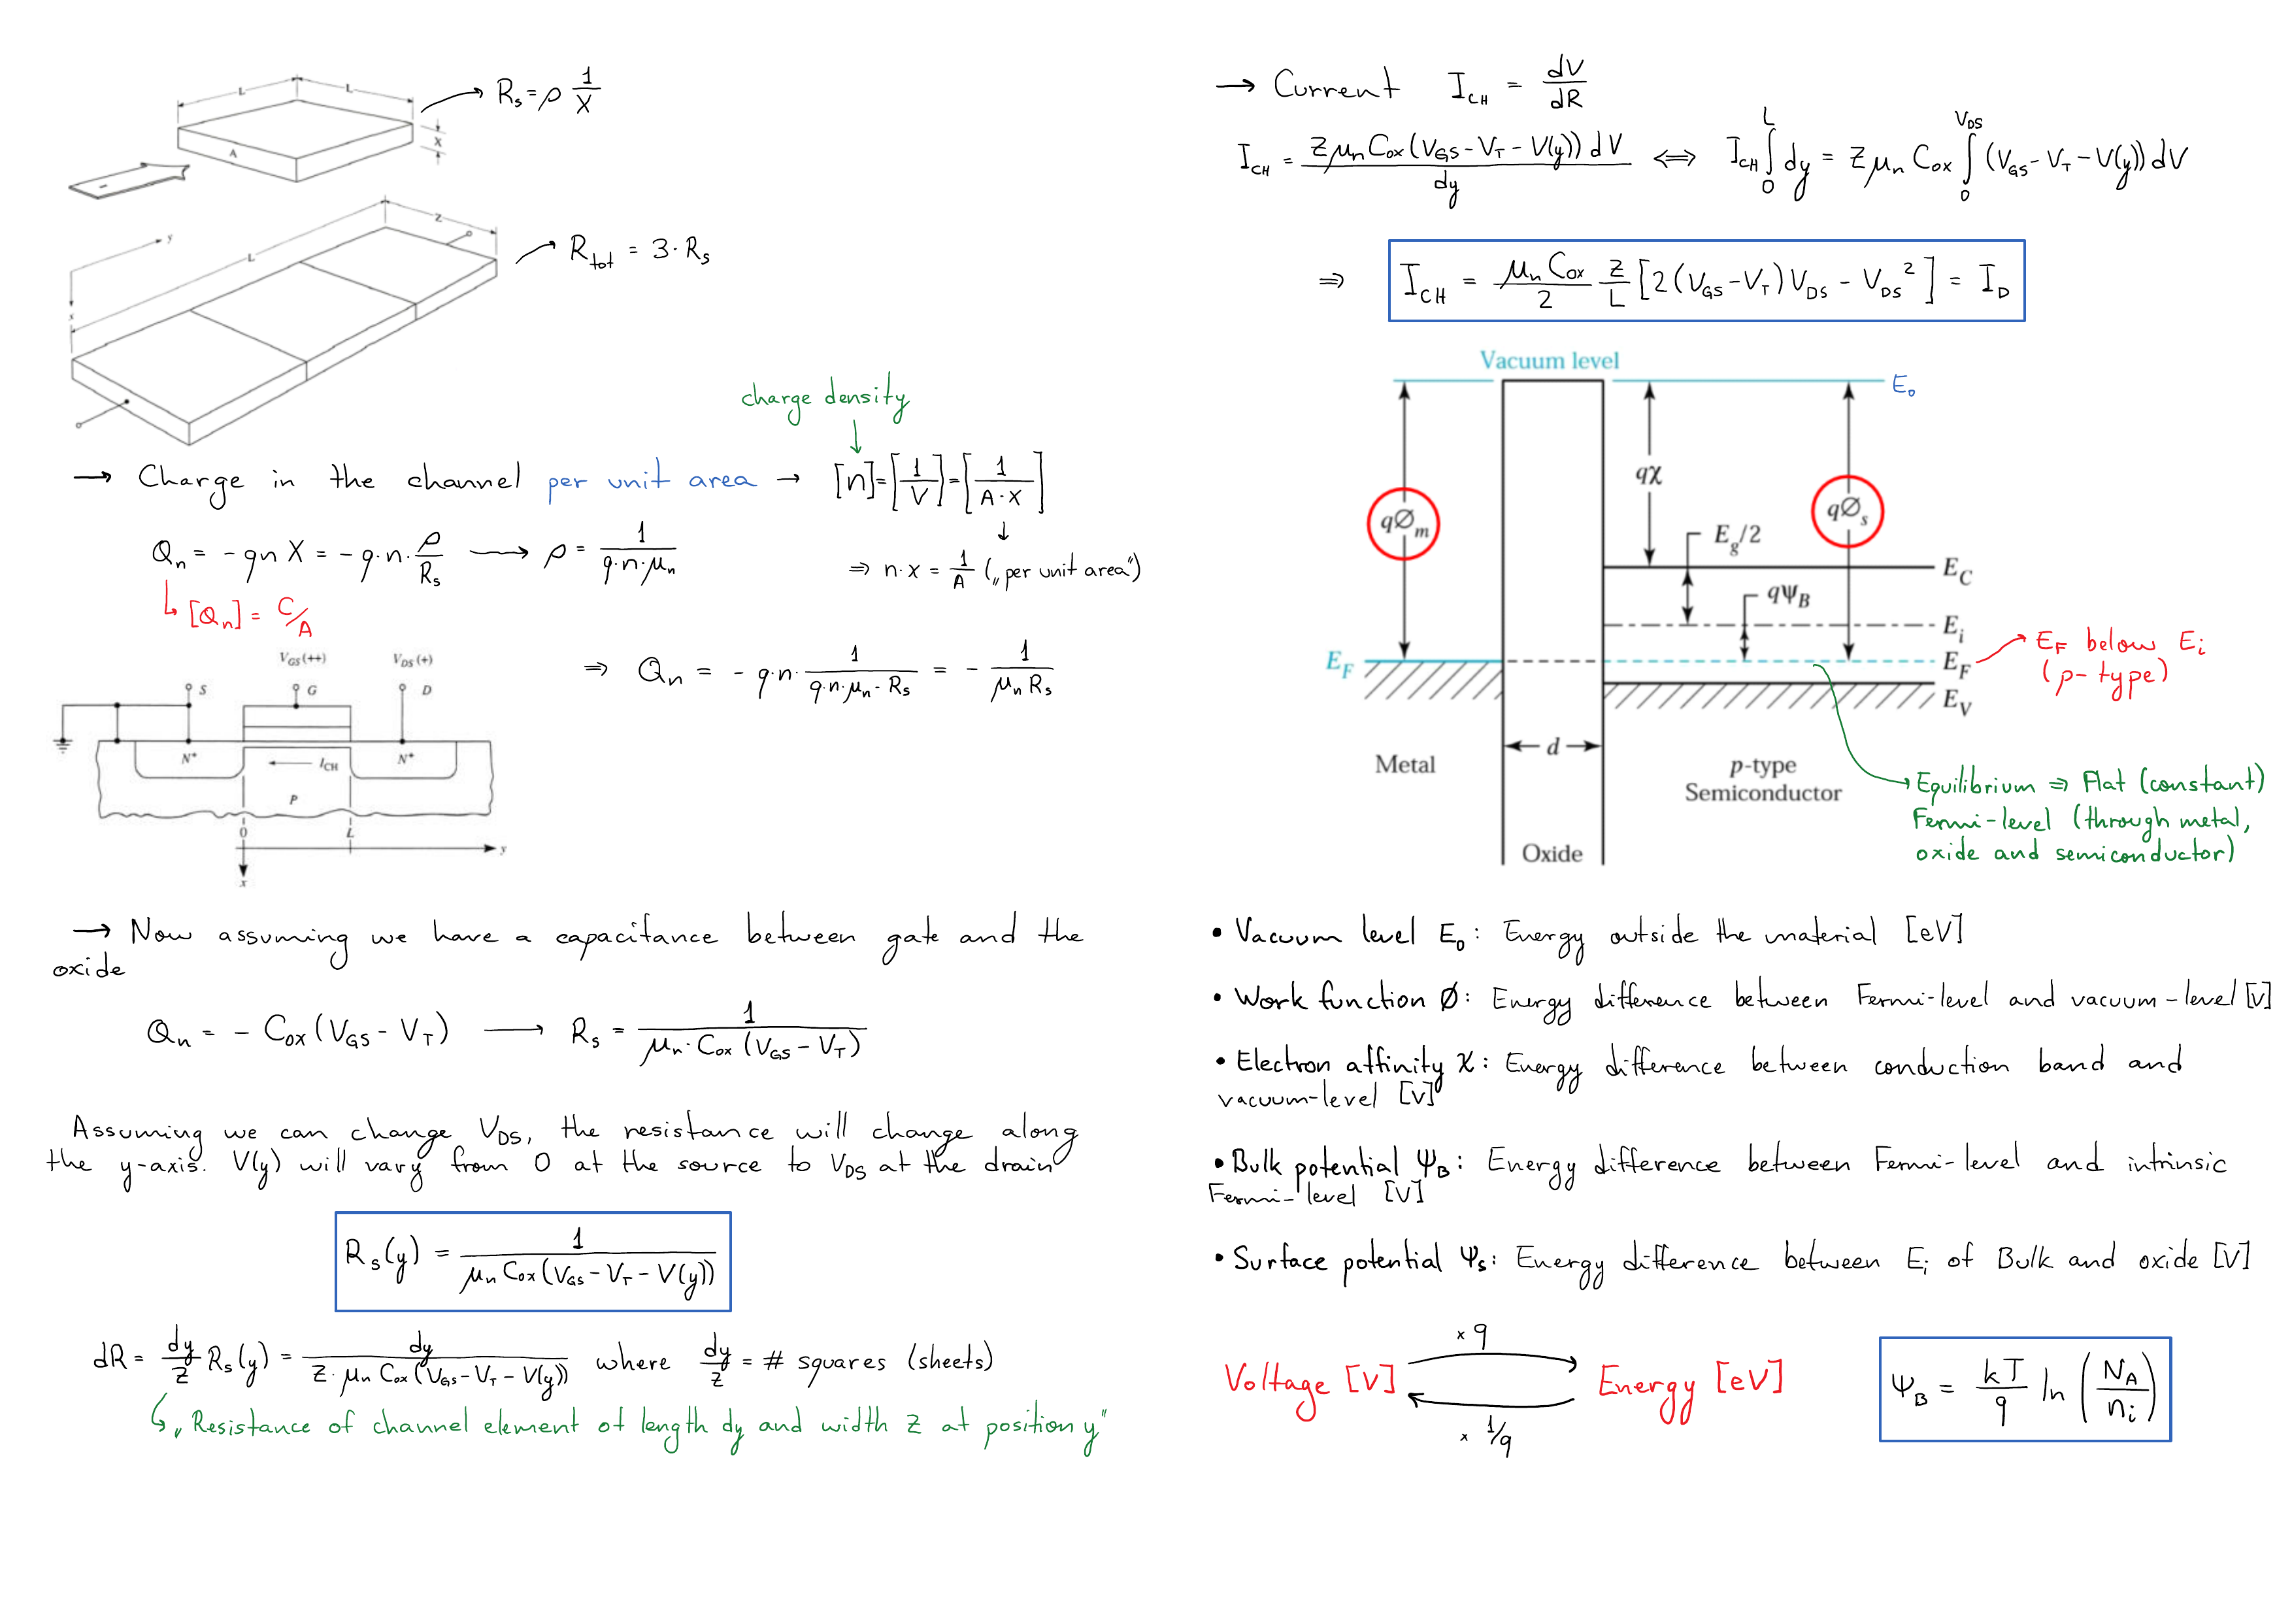 L L
X
A
→ Rₛ = ρ 1/X
y
x
L
Z
→ R_tot = 3 · Rₛ
charge density
↓
→ Charge in the channel per unit area → [n] = [1/V] = [1/(A·X)]
Qₙ = - qn X = - q·n· ρ/Rₛ → ρ = 1/(q·n·μₙ)
↓
⇒ n·x = 1/A („per unit area")
↳ [Qₙ] = C/A
⇒ Qₙ = - q·n· 1/(q·n·μₙ·Rₛ) = - 1/(μₙ Rₛ)
V_GS (++) V_DS (+)
S G D
N⁺ I_CH N⁺
P
0 L y
x
→ Now assuming we have a capacitance between gate and the
oxide
Qₙ = - C_ox (V_GS - V_T) → Rₛ = 1/(μₙ · C_ox (V_GS - V_T))
Assuming we can change V_DS, the resistance will change along
the y-axis. V(y) will vary from 0 at the source to V_DS at the drain
Rₛ(y) = 1/(μₙ C_ox (V_GS - V_T - V(y)))
dR = dy/Z Rₛ(y) = dy/(Z · μₙ C_ox (V_GS - V_T - V(y))) where dy/Z = # squares (sheets)
↳ „Resistance of channel element of length dy and width Z at position y"
→ Current I_CH = dV/dR
I_CH = Z μₙ C_ox (V_GS - V_T - V(y)) dV / dy ⇔ I_CH ∫₀^L dy = Z μₙ C_ox ∫₀^V_DS (V_GS - V_T - V(y)) dV
⇒ I_CH = μₙ C_ox / 2 Z/L [2 (V_GS - V_T) V_DS - V_DS²] = I_D
Vacuum level
E₀
qχ
qØₘ
qØₛ
E_g/2
E_C
qΨ_B
E_i
E_F
E_F
E_V
E_F below E_i
(p-type)
d
Metal
p-type
Semiconductor
Oxide
Equilibrium ⇒ Flat (constant)
Fermi-level (through metal,
oxide and semiconductor)
• Vacuum level E₀: Energy outside the material [eV]
• Work function Ø: Energy difference between Fermi-level and vacuum-level [V]
• Electron affinity χ: Energy difference between conduction band and
vacuum-level [V]
• Bulk potential Ψ_B: Energy difference between Fermi-level and intrinsic
Fermi-level [V]
• Surface potential Ψₛ: Energy difference between E_i of Bulk and oxide [V]
x q
Voltage [V] Energy [eV]
x 1/q
Ψ_B = kT/q ln (N_A/n_i)